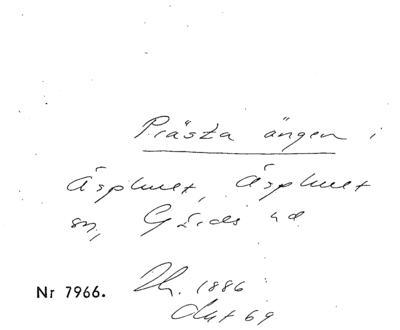 Prästa ängen i
Äsphult, Äsphult
sn, Gärds hd
Nr 7966. Th. 1886
Akt 69